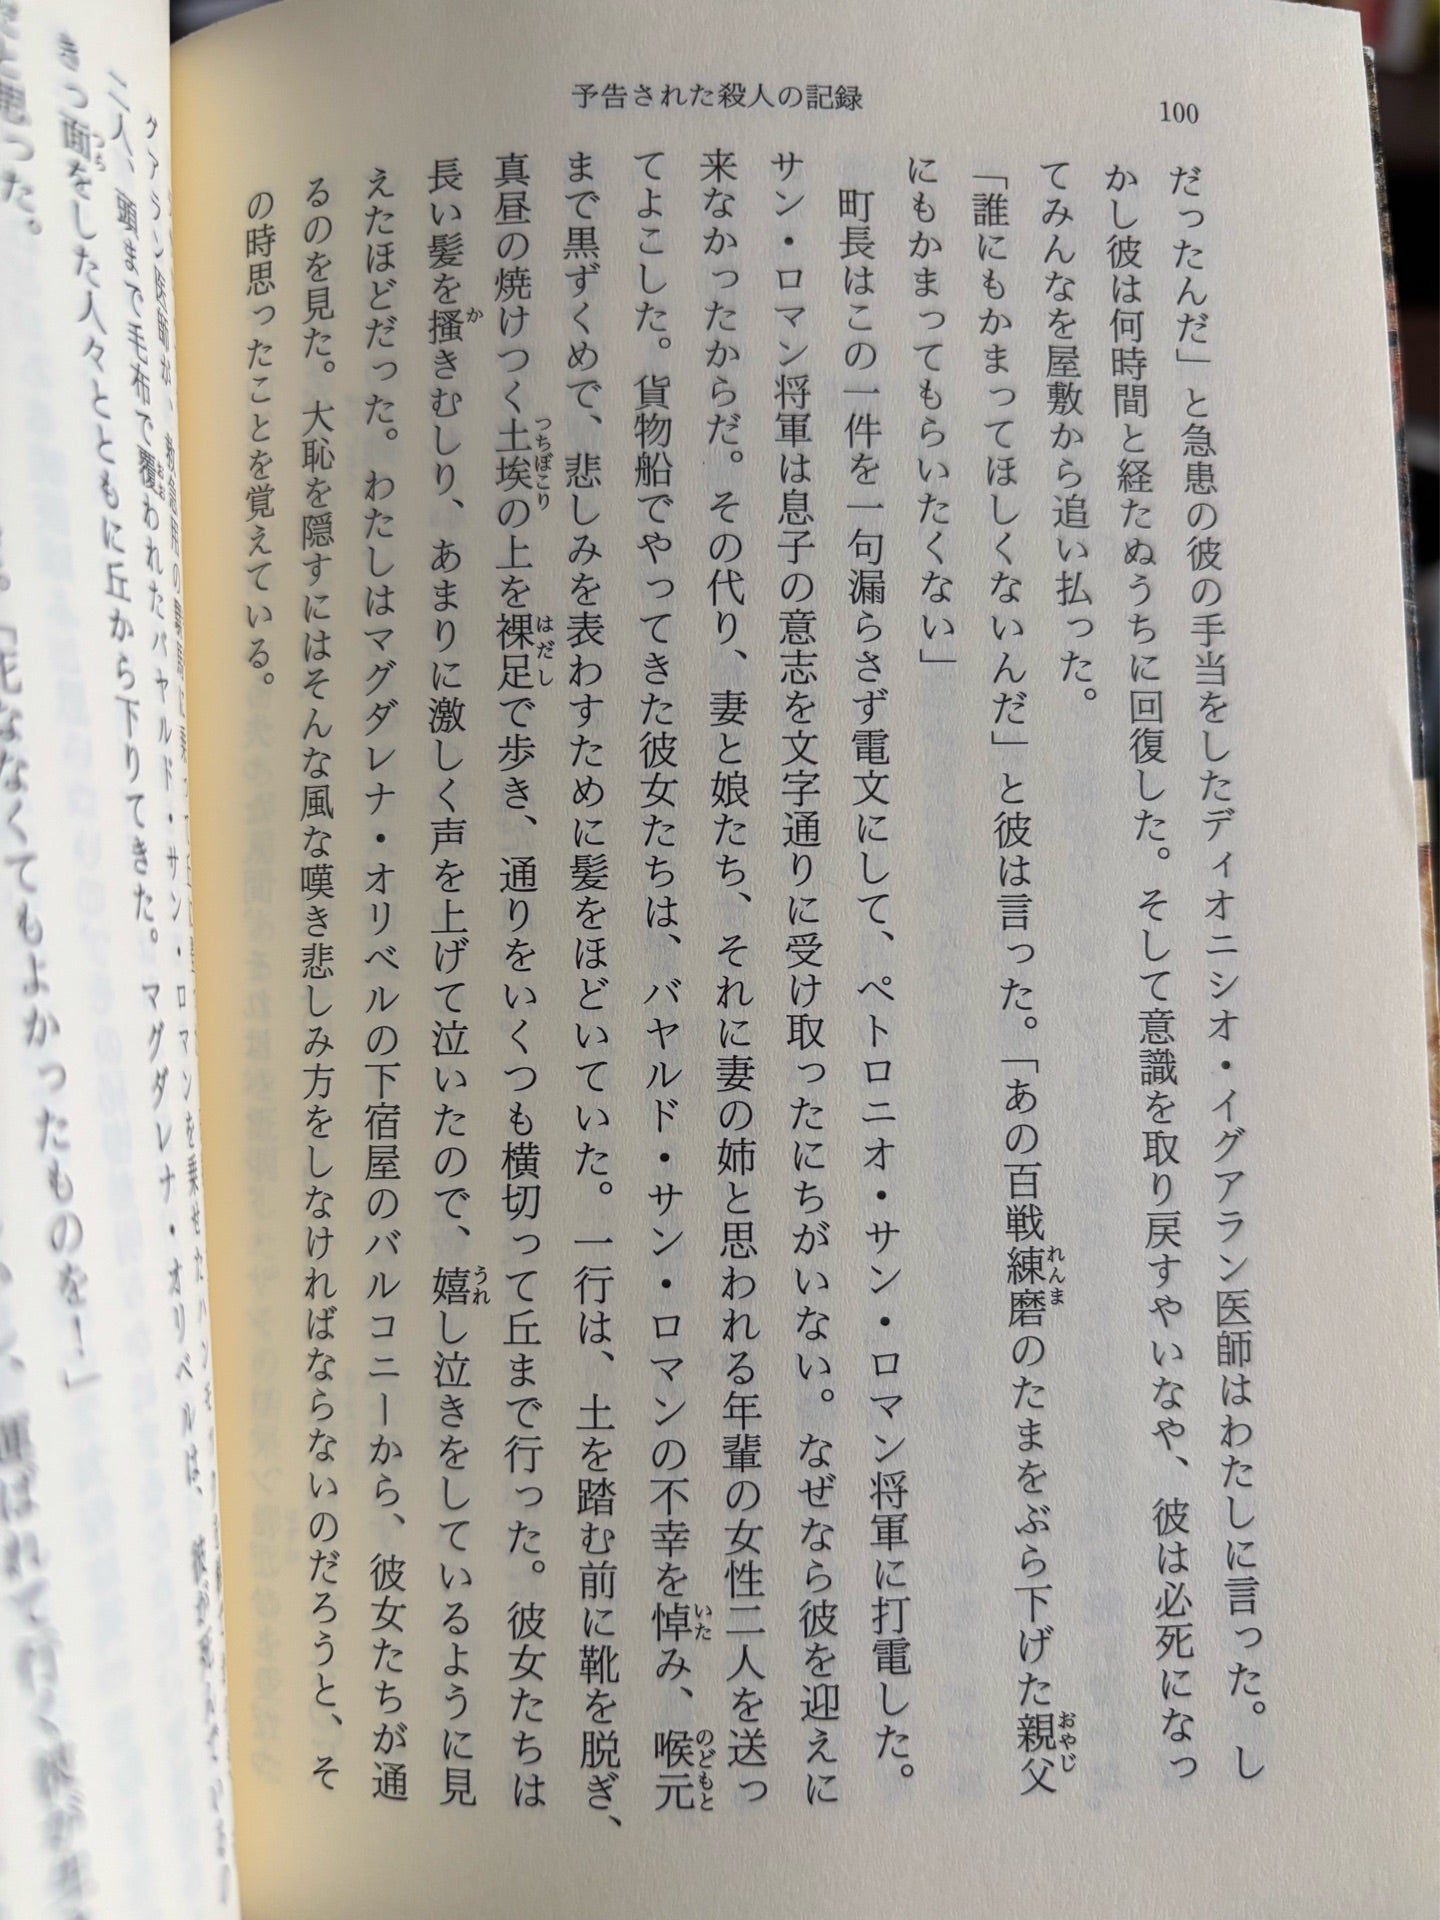 100
予告された殺人の記録
だったんだ」と急患の彼の手当をしたディオニシオ・イグアラン医師はわたしに言った。し
かし彼は何時間と経たぬうちに回復した。そして意識を取り戻すやいなや、彼は必死になっ
てみんなを屋敷から追い払った。
「誰にもかまってほしくないんだ」と彼は言った。「あの百戦練磨のたまをぶら下げた親父
れんま
おやじ
にもかまってもらいたくない」
町長はこの一件を一句漏らさず電文にして、ペトロニオ・サン・ロマン将軍に打電した。
サン・ロマン将軍は息子の意志を文字通りに受け取ったにちがいない。なぜなら彼を迎えに
来なかったからだ。その代り、妻と娘たち、それに妻の姉と思われる年輩の女性二人を送っ
てよこした。貨物船でやってきた彼女たちは、バヤルド・サン・ロマンの不幸を悼み、喉元
いた
のどもと
まで黒ずくめで、悲しみを表わすために髪をほどいていた。一行は、土を踏む前に靴を脱ぎ、
真昼の焼けつく土埃の上を裸足で歩き、通りをいくつも横切って丘まで行った。彼女たちは
つちぼこり
はだし
長い髪を掻きむしり、あまりに激しく声を上げて泣いたので、嬉し泣きをしているように見
か
うれ
えたほどだった。わたしはマグダレナ・オリベルの下宿屋のバルコニーから、彼女たちが通
るのを見た。大恥を隠すにはそんな風な嘆き悲しみ方をしなければならないのだろうと、そ
の時思ったことを覚えている。
二人、頭まで毛布で覆われたバヤルド・サン・ロマンを乗せた
きつ面をした人々とともに丘から下りてきた。マグダレナ・オリベルは、
つら
死ななくてもよかったものを！」